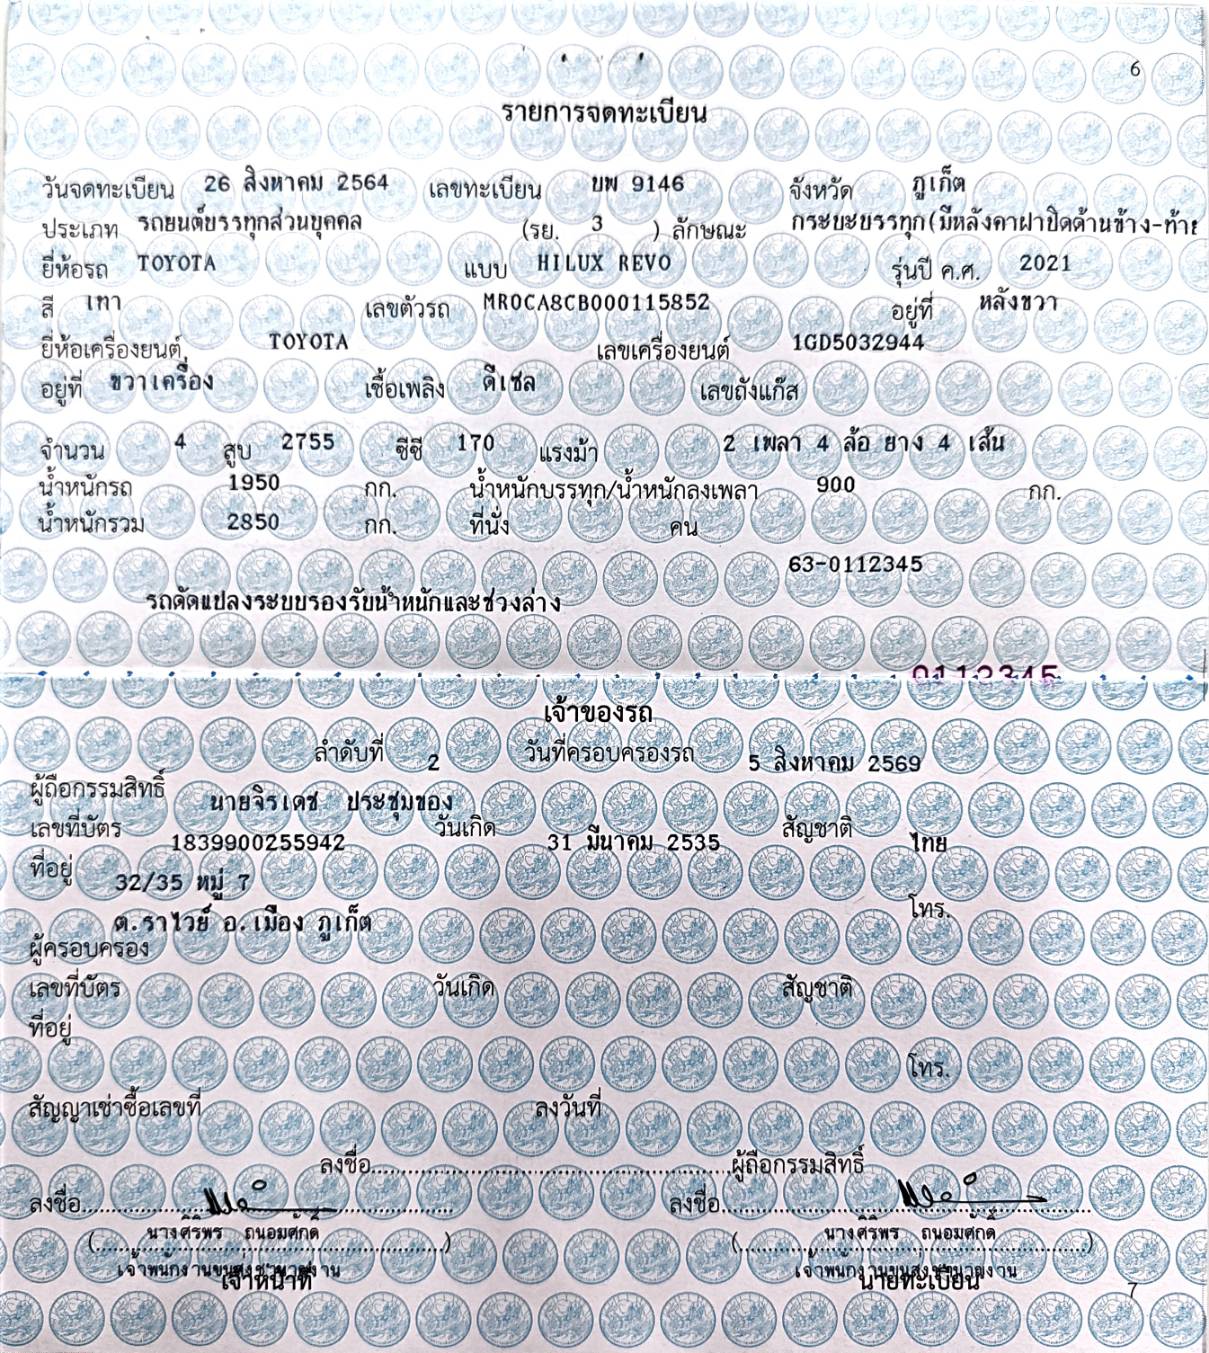 6
รายการจดทะเบียน
วันจดทะเบียน 26 สิงหาคม 2564 เลขทะเบียน บพ 9146 จังหวัด ภูเก็ต
ประเภท รถยนต์บรรทุกส่วนบุคคล (รย. 3 ) ลักษณะ กระบะบรรทุก(มีหลังคาฝาปิดด้านข้าง-ท้าย
ยี่ห้อรถ TOYOTA แบบ HILUX REVO รุ่นปี ค.ศ. 2021
สี เทา เลขตัวรถ MR0CA8CB000115852 อยู่ที่ หลังขวา
ยี่ห้อเครื่องยนต์ TOYOTA เลขเครื่องยนต์ 1GD5032944
อยู่ที่ ขวาเครื่อง เชื้อเพลิง ดีเซล เลขถังแก๊ส
จำนวน 4 สูบ 2755 ซีซี 170 แรงม้า 2 เพลา 4 ล้อ ยาง 4 เส้น
น้ำหนักรถ 1950 กก. น้ำหนักบรรทุก/น้ำหนักลงเพลา 900 กก.
น้ำหนักรวม 2850 กก. ที่นั่ง คน
63-0112345
รถดัดแปลงระบบรองรับน้ำหนักและช่วงล่าง
0112345
เจ้าของรถ
ลำดับที่ 2 วันที่ครอบครองรถ 5 สิงหาคม 2569
ผู้ถือกรรมสิทธิ์ นายจิรเดช ประชุมของ
เลขที่บัตร 1839900255942 วันเกิด 31 มีนาคม 2535 สัญชาติ ไทย
ที่อยู่ 32/35 หมู่ 7
โทร.
ต.ราไวย์ อ.เมือง ภูเก็ต
ผู้ครอบครอง
เลขที่บัตร วันเกิด สัญชาติ
ที่อยู่
โทร.
สัญญาเช่าซื้อเลขที่ ลงวันที่
ลงชื่อ........................ผู้ถือกรรมสิทธิ์
ลงชื่อ........................ ลงชื่อ........................
(นางศิริพร ถนอมศักดิ์) (นางศิริพร ถนอมศักดิ์)
เจ้าพนักงานขนส่งชำนาญงาน เจ้าพนักงานขนส่งชำนาญงาน
เจ้าหน้าที่ นายทะเบียน
7